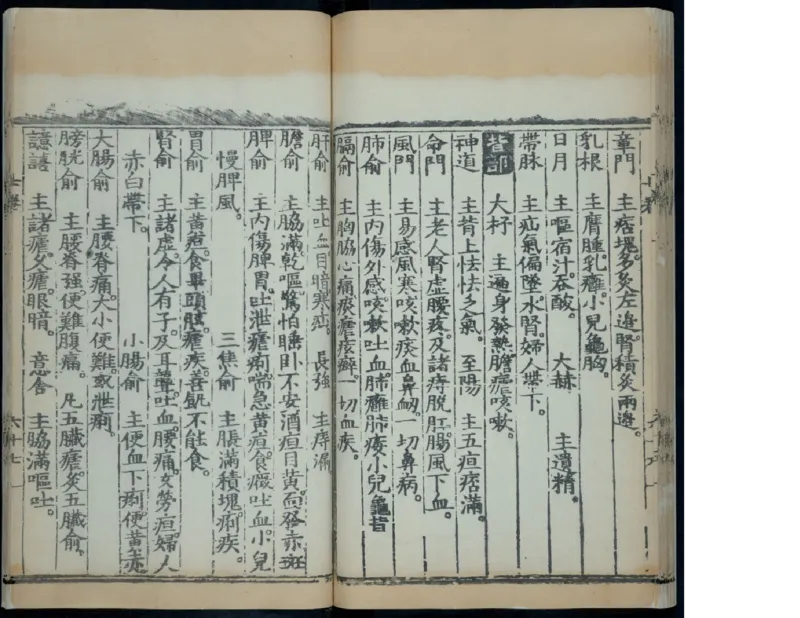 章門　主痞塊。多灸左邊。腎積灸兩邊。
乳根　主膺腫。乳癰。小兒龜胸。
日月　主嘔宿汁。吞酸。　大赫　主遺精。
帶脉　主疝氣偏墜水腎。婦人帶下。
背部　大杼　主遍身發熱。膽瘧。咳嗽。
神道　主背上怯怯乏氣。　至陽　主五疸痞滿。
命門　主老人腎虛腰疼。及諸痔脫肛。腸風下血。
風門　主易感風寒。咳嗽痰血。鼻衂。一切鼻病。
肺俞　主內傷外感。咳嗽吐血。肺癰肺痿。小兒龜背
膈俞　主胸脇心痛。痰瘧。痃癖。一切血疾。
肝俞　主吐血。目暗。寒疝。　長強　主痔漏
膽俞　主脇滿。乾嘔。驚怕。睡卧不安。酒疸目黃。面發赤斑
脾俞　主內傷脾胃。吐泄。瘧痢。喘急。黃疸。食癥。吐血。小兒
慢脾風。　三焦俞　主脹滿積塊。痢疾。
胃俞　主黃疸。食畢頭眩。瘧疾。善飢不能食。
腎俞　主諸虛。令人有子。及耳聾。吐血。腰痛。女勞疸。婦人
赤白帶下。　小腸俞　主便血下痢。便黃赤
大腸俞　主腰脊痛。大小便難。或泄痢。
膀胱俞　主腰脊强。便難腹痛。凡五臟瘧。灸五臟俞。
譩譆　主諸瘧。久瘧。眼暗。　意舍　主脇滿嘔吐。
六十七